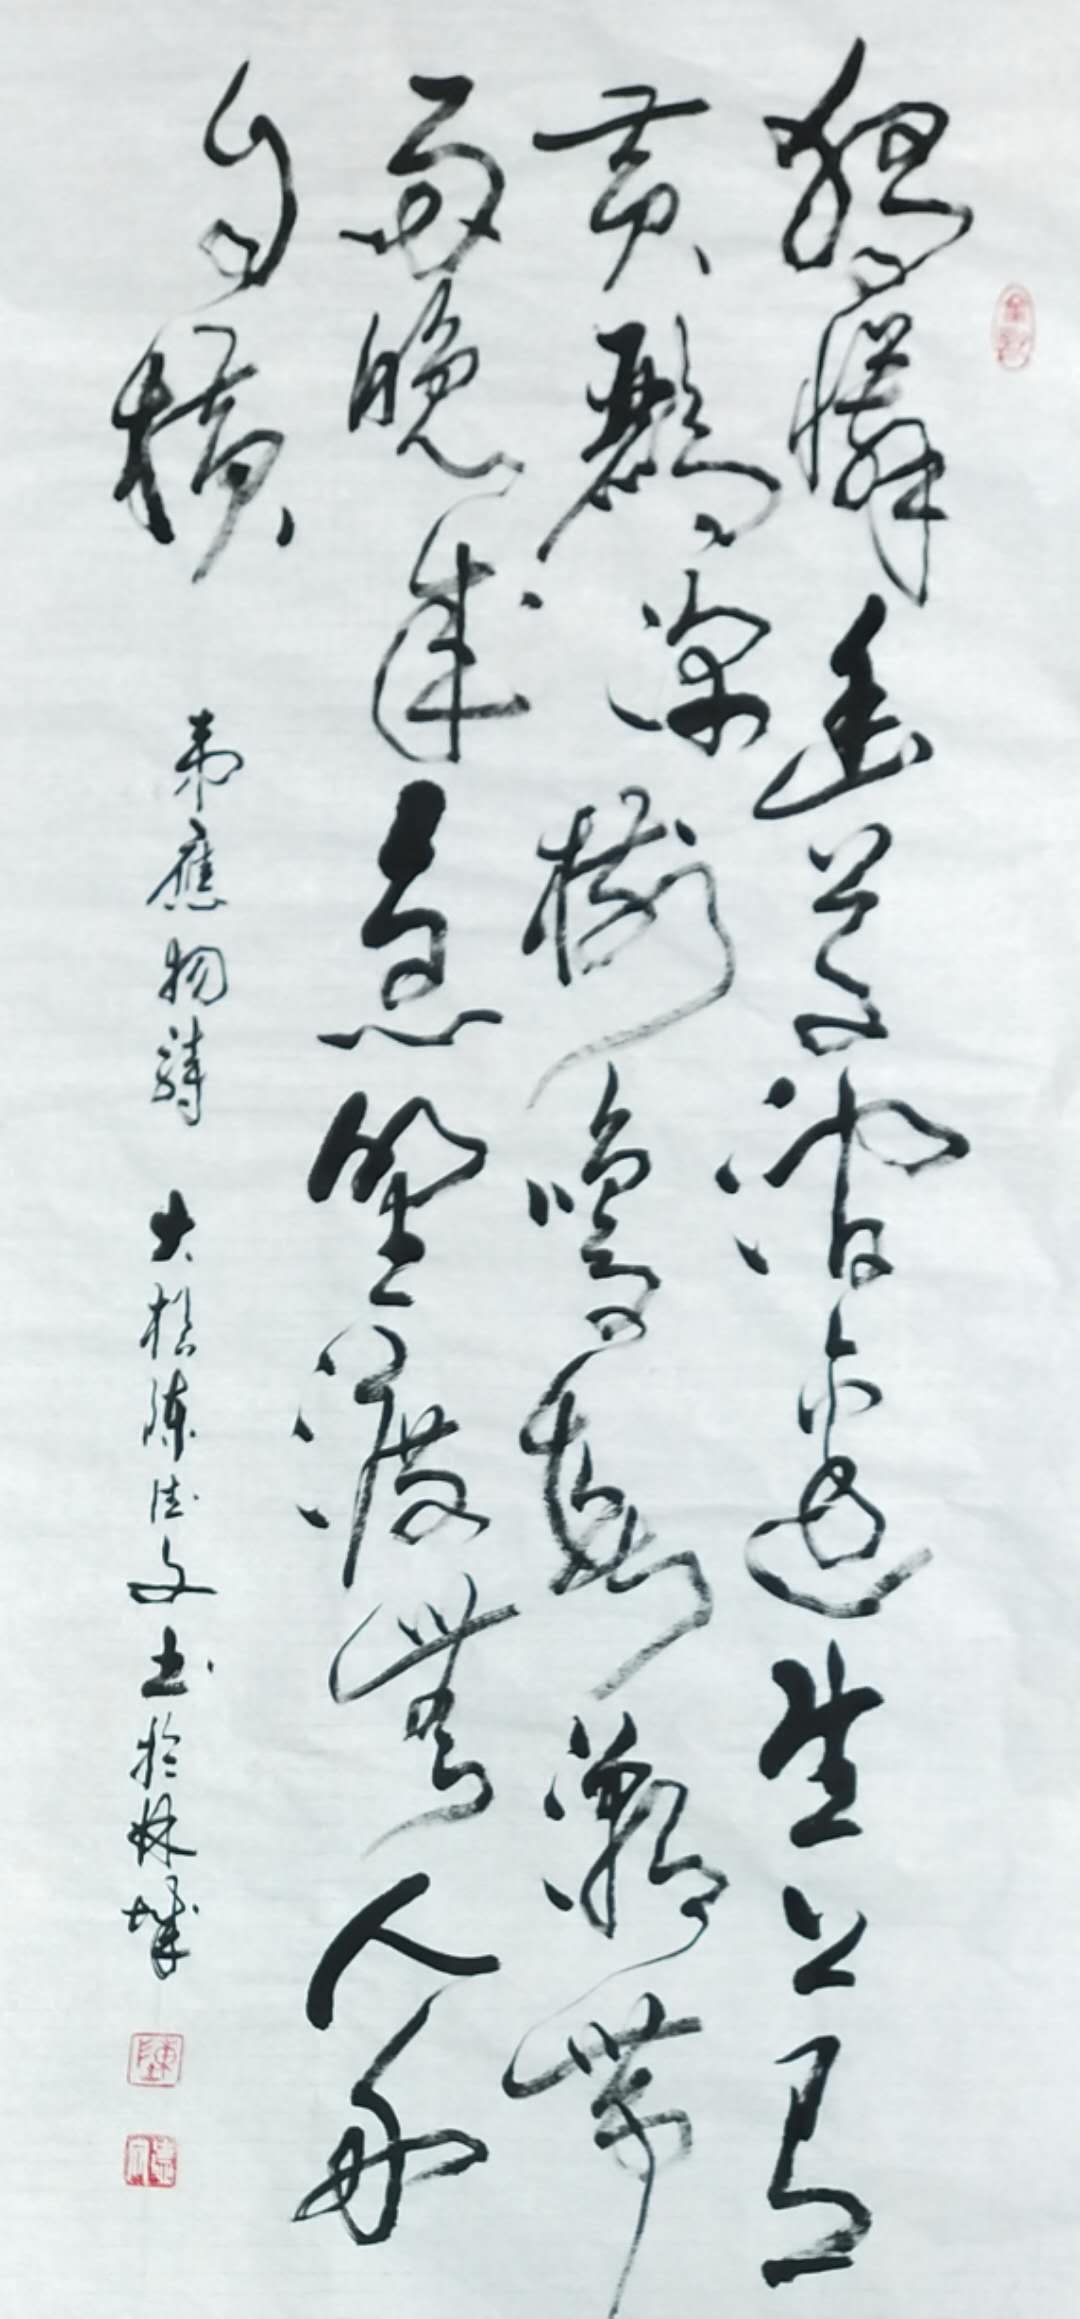 獨憐幽草澗邊生上有
黃鸝深樹鳴春潮帶
雨晚來急野渡無人舟
自橫
韋應物詩 陳德文书於林城
陳